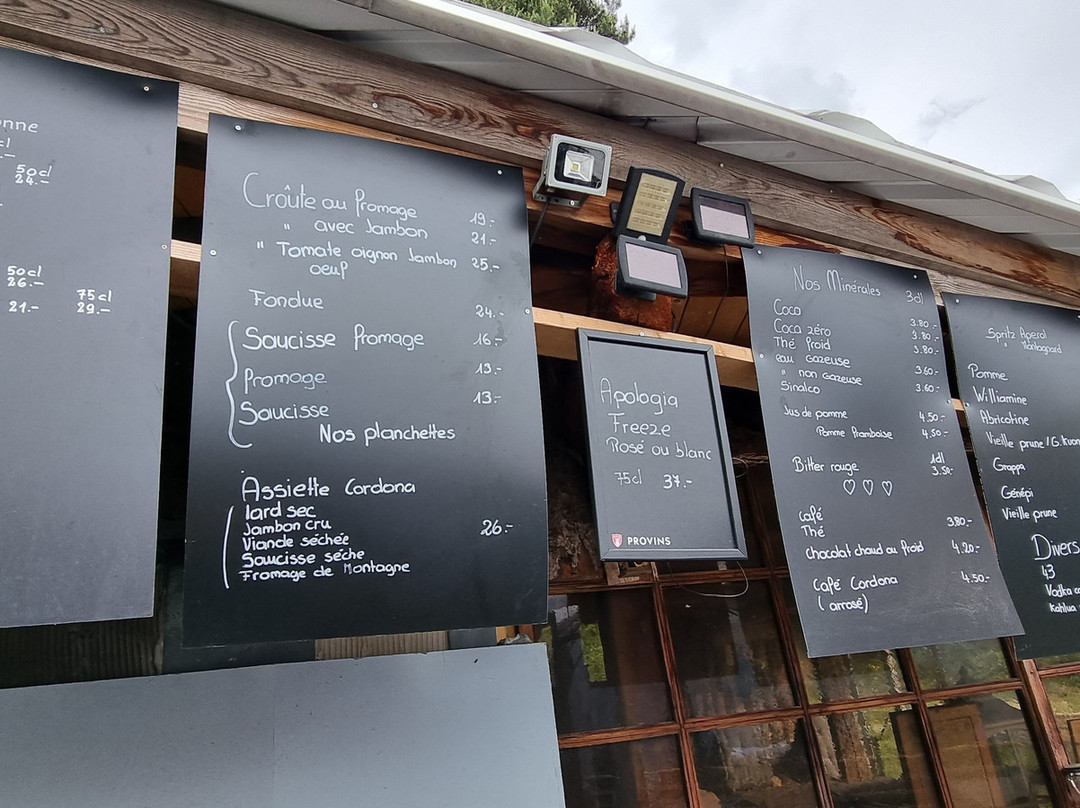 nne
cl
.-
50cl
24.-
50cl
26.-
75cl
21.- 29.-
Croûte au fromage 19.-
" avec Jambon 21.-
" Tomate oignon Jambon 25.-
oeuf
Fondue 24.-
Saucisse Fromage 16.-
Fromage 13.-
Saucisse 13.-
Nos planchettes
Assiette Cordona
lard sec
Jambon cru 26.-
Viande séchée
Saucisse sèche
Fromage de Montagne
Apologia
Freeze
Rosé ou blanc
75cl 37.-
PROVINS
Nos Minérales 3dl
Coca 3.80.-
Coca zéro 3.80.-
Thé froid 3.80.-
eau gazeuse 3.60.-
" non gazeuse 3.60.-
Sinalco
Jus de pomme 4.50.-
Pomme framboise 4.50.-
Bitter rouge 1dl
3.50.-
♡ ♡ ♡
Café
Thé 3.80.-
chocolat chaud ou froid 4.20.-
Café Cordona 4.50.-
(arrosé)
Spritz Aperol
" Montagnard
Pomme
Williamine
Abricotine
Vieille prune / G.
Grappa
Génépi
Vieille prune
Divers
43
Vodka
Kahlua